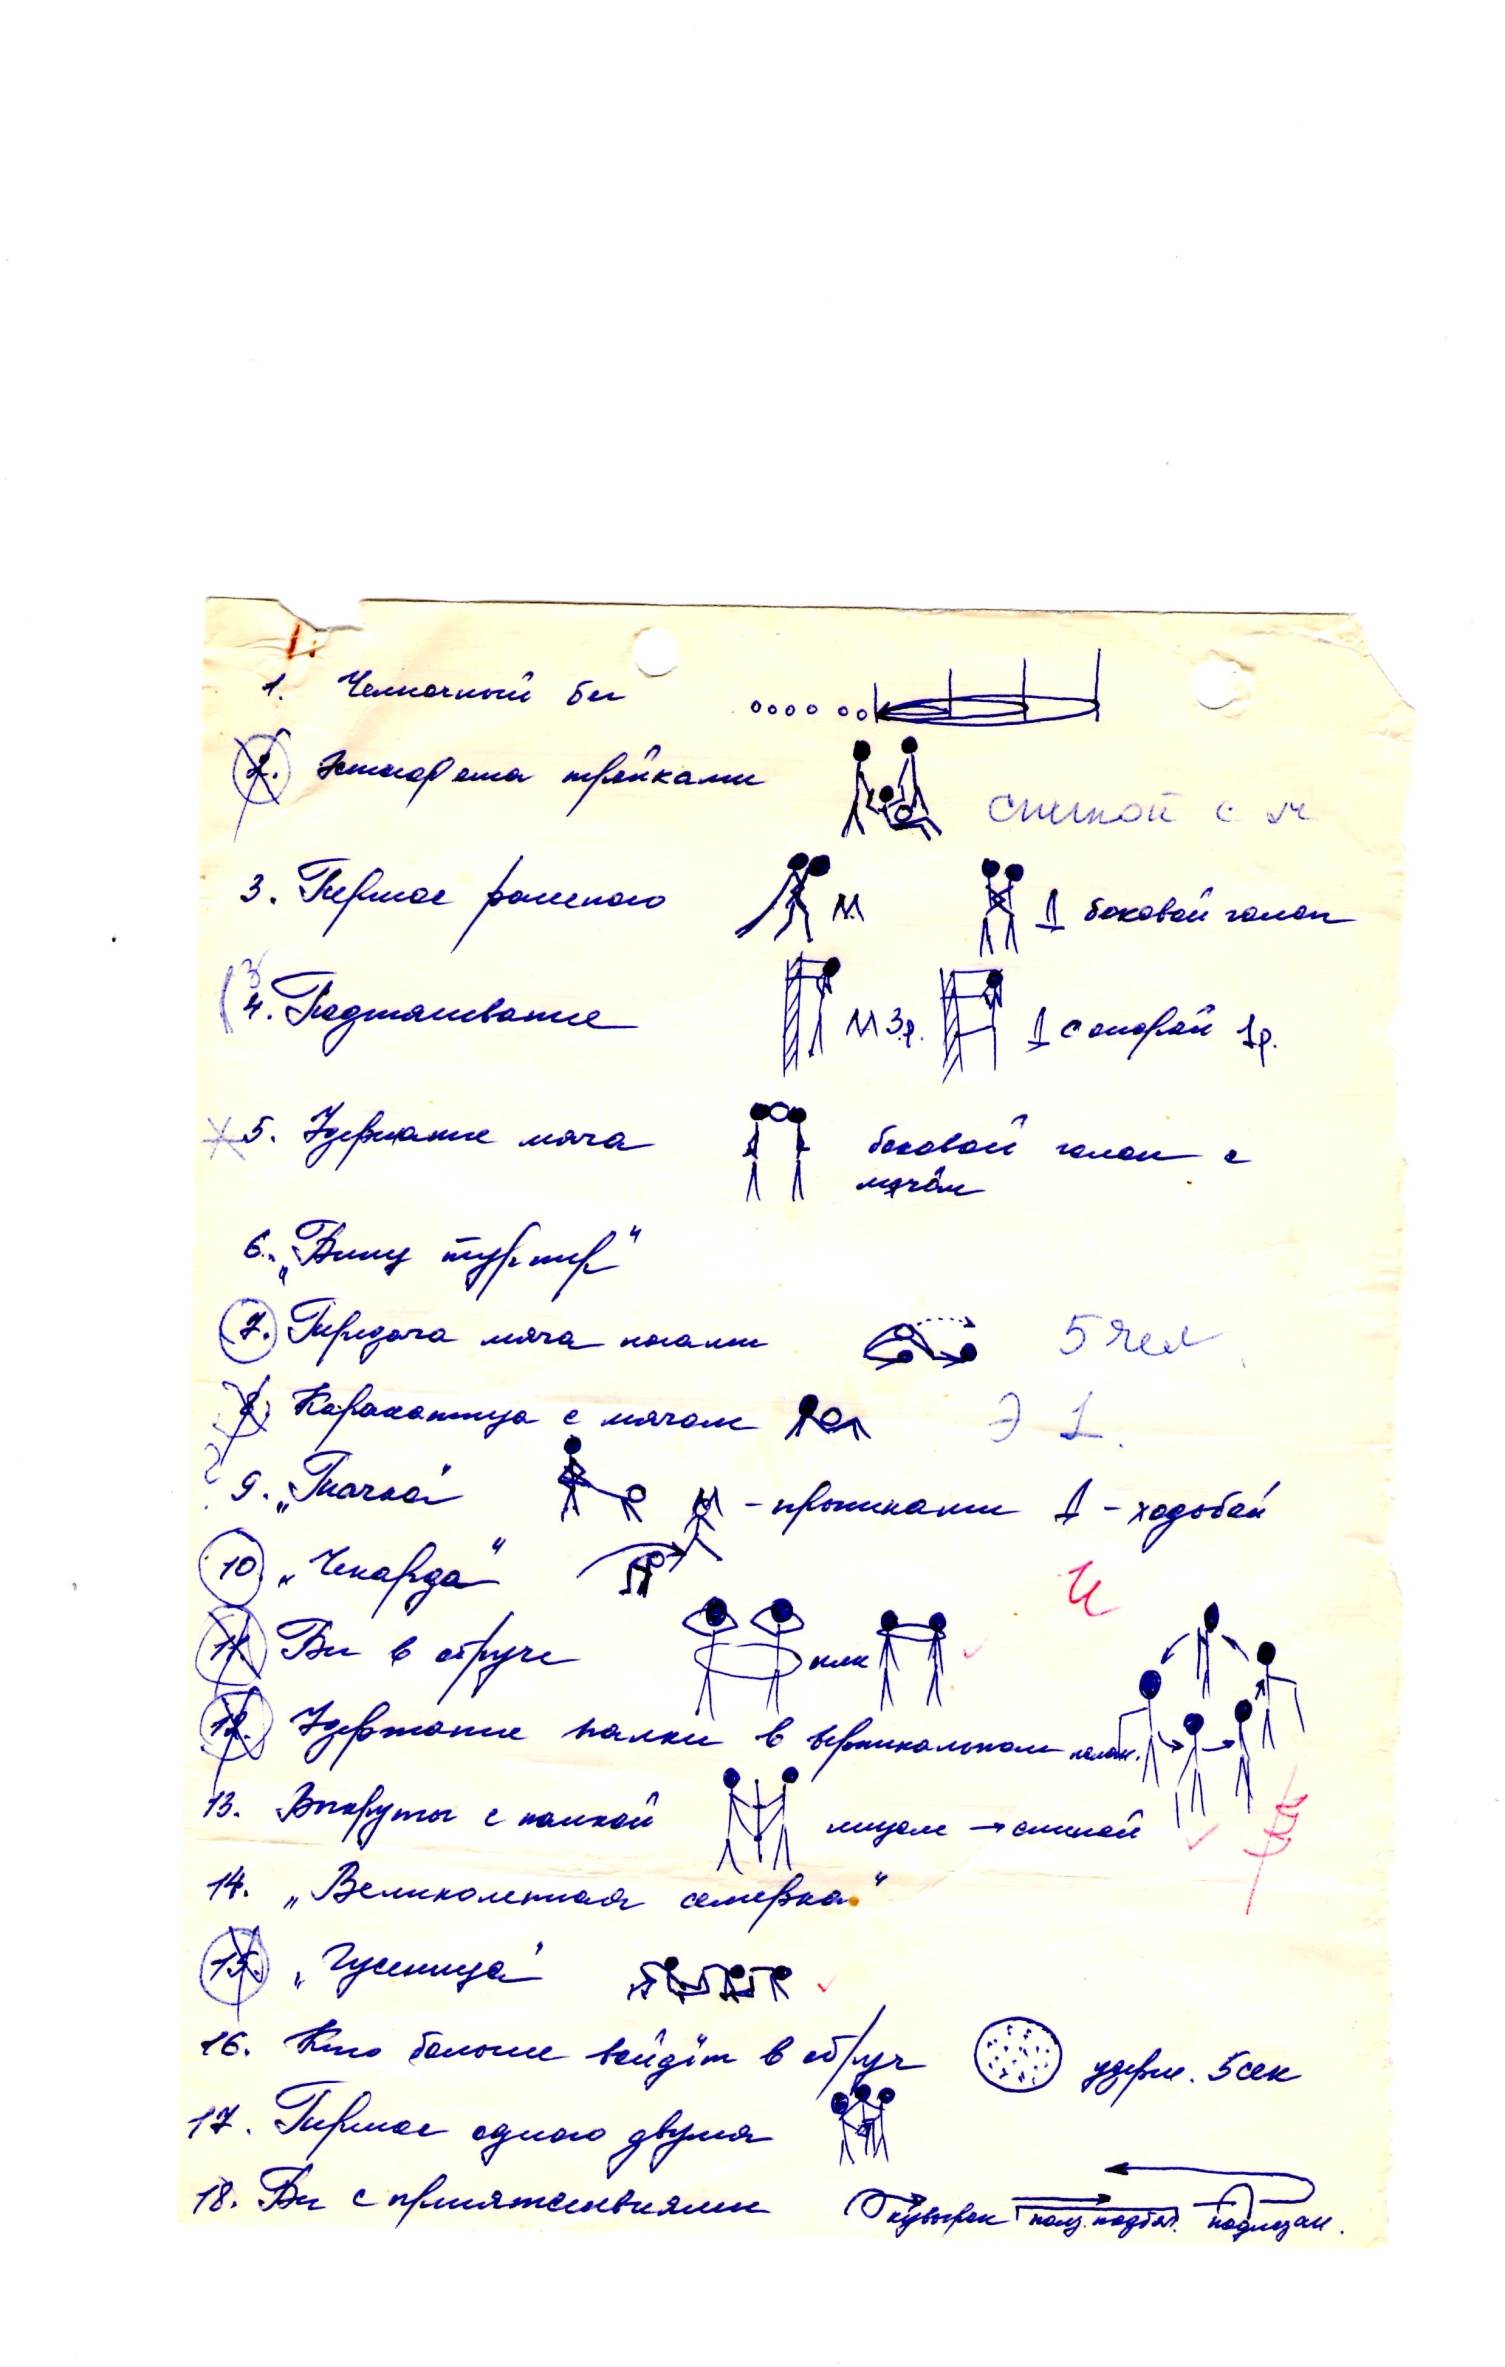 1. Челночный бег
2. Эстафета тройками
спиной с м
3. Перенос раненого М Д боковой галоп
4. Подтягивание М 3 р. Д с опорой 1 р.
5. Удержание мяча боковой галоп с
мячом
6. „Бегу
7. Передача мяча ногами 5 чел
8. Каракатица с мячом Э 1.
9. „Тачка" М - прыжками Д - ходьбой
10. „Чехарда"
И
11. Бег в обруче или
12. Удержание палки в вертикальном полож.
13. Выкруты с палкой лицом → спиной
14. „Великолепная семерка"
15. „Гусеница"
16. Кто больше войдёт в обруч удерж. 5 сек
17. Перенос одного двумя
18. Бег с препятствиями кувырок подлезан.